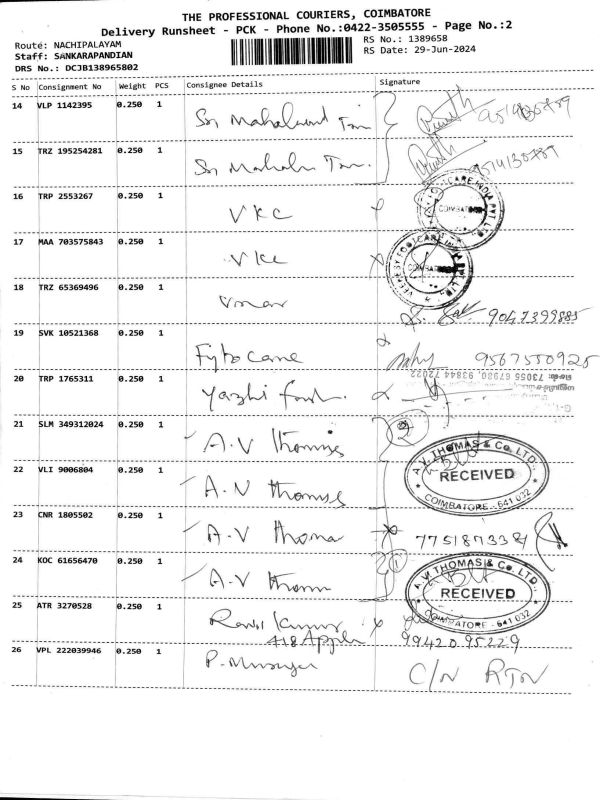 THE PROFESSIONAL COURIERS, COIMBATORE
Delivery Runsheet - PCK - Phone No.:0422-3505555 - Page No.:2
Route: NACHIPALAYAM
RS No.: 1389658
Staff: SANKARAPANDIAN
RS Date: 29-Jun-2024
DRS No.: DCJB138965802
S No Consignment No Weight PCS Consignee Details Signature
14 VLP 1142395 0.250 1
15 TRZ 195254281 0.250 1
16 TRP 2553267 0.250 1 VKC
17 MAA 703575843 0.250 1 VKC
18 TRZ 65369496 0.250 1
9047399885
19 SVK 10521368 0.250 1 Fytocare 9567550925
20 TRP 1765311 0.250 1 Yazhi
73055 67980, 93844 72022
21 SLM 349312024 0.250 1 A.V Thomas 2
A.V. THOMAS & Co. LTD.,
RECEIVED
COIMBATORE - 641 032
22 VLI 9006804 0.250 1 A.V Thomas
23 CNR 1805502 0.250 1 A.V Thoma
24 KOC 61656470 0.250 1 A.V 1
A.V. THOMAS & Co. LTD.,
RECEIVED
COIMBATORE - 641 032
25 ATR 3270528 0.250 1 Kumar
99420 95229
26 VPL 222039946 0.250 1 C/N RTN